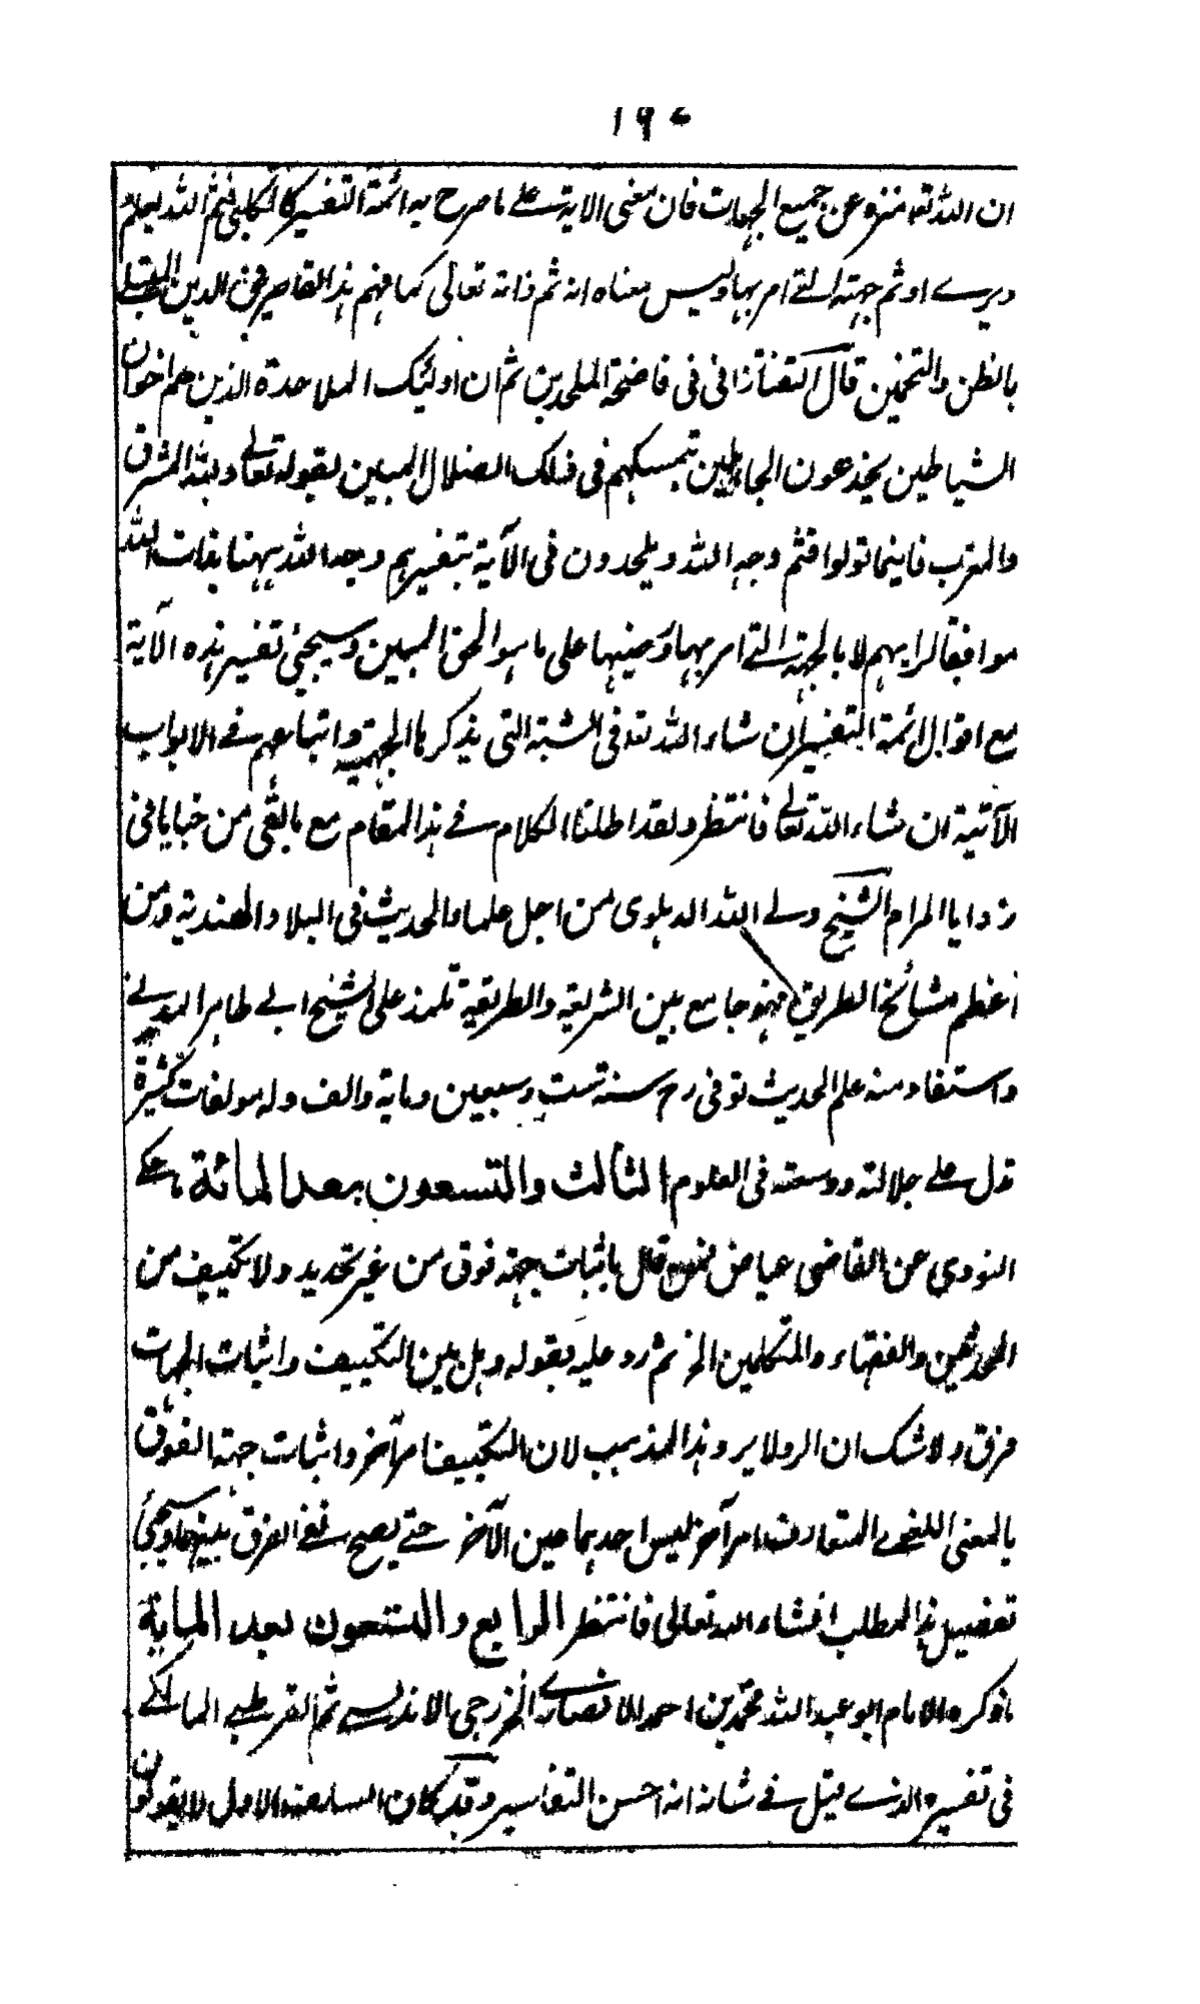 ١٩٤
ان الله تع منزه عن جميع الجهات فان معنى الاية على ما صرح به ائمة التفسير كالكلبى فثم الله يعلم
ويرے او ثم جهته التے امر بها وليس معناه انه ثم ذاته تعالى كما فهم هذا القاصر فى الدين
بالظن والتخمين قال التفتازانى فى فاضحة الملحدين ثم ان اولئك الملاحدة الذين هم اخوان
الشياطين يخدعون الجاهلين بتمسكهم فى ذلك الضلال المبين بقوله تعالے ولله المشرق
والمغرب فاينما تولوا فثم وجه الله ويلحدون فى الآية بتفسيرهم وجه الله ههنا بذات الله
موافقا لرايهم لا بالجهة التے امر بها ورضيها على ما هو الحق المبين وسيجئ تفسير هذه الآية
مع اقوال ائمة التفسير ان شاء الله تع فى الشبه التى يذكرها الجهمية واتباعهم فے الابواب
الآتية ان شاء الله تعالے فانتظر ولقد اطلنا الكلام فے هذا المقام مع ما بقى من خبايا فى
زوايا المرام الشيخ ولے الله الدهلوى من اجل علماء الحديث فى البلاد الهندية ومن
اعظم مشائخ الطريق فهو جامع بين الشريعة والطريقة تلمذ على الشيخ ابے طاهر المدنے
واستفاد منه علم الحديث توفى رح سنة ست وسبعين وماية والف وله مولفات كثيرة
تدل على جلالته ووسعته فى العلوم الثالث والتسعون بعد المائة ما حكے
النووي عن القاضى عياض فمن قال باثبات جهة فوق من غير تحديد ولا تكييف من
المحدثين والفقهاء والمتكلمين الخ ثم رد عليه بقوله وهل بين التكييف واثبات الجهات
فرق ولا شك ان الرد لا يرد هذا المذهب لان التكييف امر آخر واثبات جهة الفوق
بالمعنى اللغوى المتعارف امر آخر ليس احدهما عين الآخر حتے يصح نفے الفرق بينهما وسيجئ
تفصيل هذا المطلب انشاء الله تعالى فانتظر الرابع والتسعون بعد الماية
ما ذكره الامام ابو عبد الله محمد بن احمد الانصارے الخزرجى الاندلسے ثم القرطبے المالكے
فى تفسيره الذے قيل فے شانه انه احسن التفاسير وقد كان السلف الاول لا يقولون